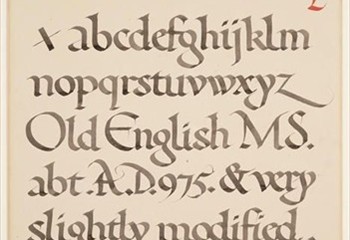 x abcdefghijklm
nopqrstuvwxyz
Old English MS.
abt. A.D. 975. & very
slightly modified.